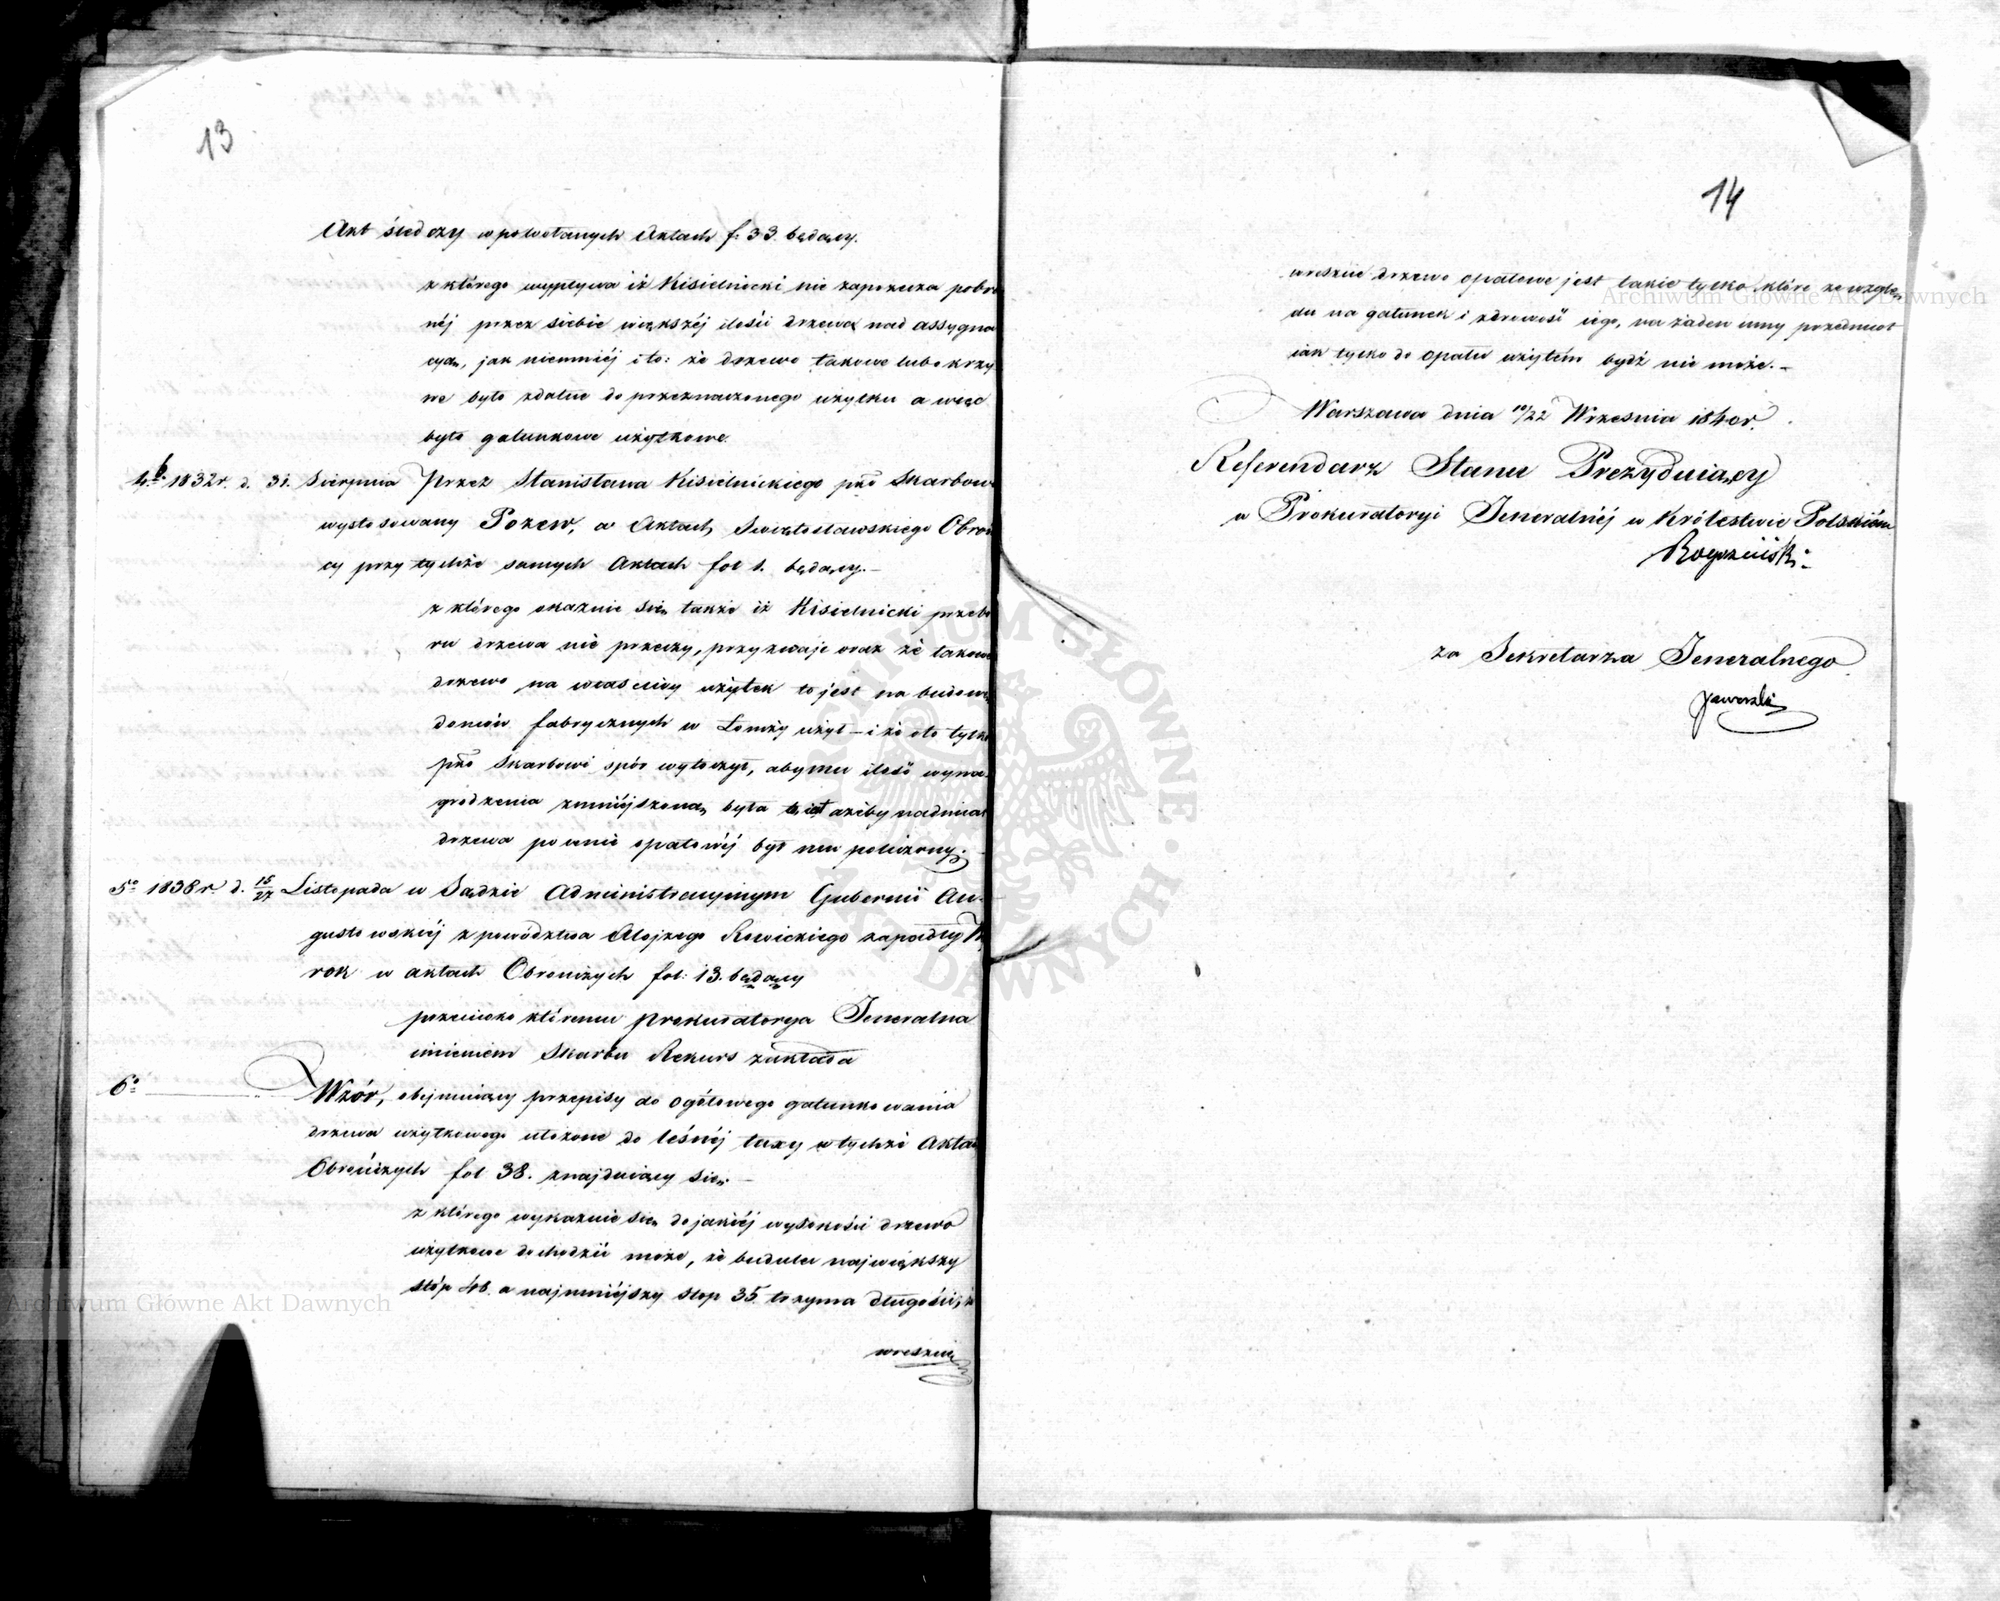 13
Akt śledczy w powołanych Aktach f: 33. będący.
z którego wypływa iż Kisielnicki nie zaprzecza pobra
néj przez siebie większéj ilości drzewa nad assygna
cyą, jak niemniéj i to: że drzewo takowe lubo krzy
we było zdatne do przeznaczonego użytku a więc
było gatunkowe użytkowe.
4to. 1832r. d. 31. Sierpnia Przez Stanisława Kisielnickiego pko Skarbowi
wystosowany Pozew, w Aktach Swiętosławskiego Obroń
cy przy tychże samych Aktach fol 1. będący.—
z którego okazuie się także iż Kisielnicki przebo
ru drzewa nie przeczy, przyznaje oraz że takowe
drzewo na właściwy użytek to jest na budowę
domów fabrycznych w Łomży użył — i że oto tylko
pko Skarbowi spór wytoczył, aby mu ilość wyna-
grodzenia zmniéjszoną była ażeby nadmiar
drzewa po cenie opałowéj był mu policzony.—
5o 1838r. d. 15/27 Listopada w Sądzie Administracyjnym Gubernii Au-
gustowskiéj z powództwa Alojzego Rowickiego zapadły Wy
rok w aktach Obrończych fol: 13. będący
przeciwko któremu Prokuratorya Jeneralna
imieniem Skarbu Rekurs zakłada
6o Wzór, obejmuiący przepisy do ogółowego gatunkowania
drzewa użytkowego ułożone do leśnéj taxy w tychże Aktach
Obrończych fol 38. znajduiący się.—
z którego wykazuie się do jakiéj wysokości drzewo
użytkowe dochodzić może, że budulec największy
stóp 48. a najmniéjszy stop 35 trzyma długości, a
wreszcie
14
wreszcie drzewo opałowe jest takie tylko które ze wzglę
du na gatunek i zdrowość iego, na żaden inny przedmiot
iak tylko do opału użytém bydź nie może.—
Warszawa dnia 10/22 Września 1840r.
Referendarz Stanu Prezyduiący
w Prokuratoryi Jeneralnéj w Królestwie Polskiém
za Sekretarza Jeneralnego
Archiwum Główne Akt Dawnych
Archiwum Główne Akt Dawnych
ARCHIWUM GŁÓWNE · AKT DAWNYCH ·